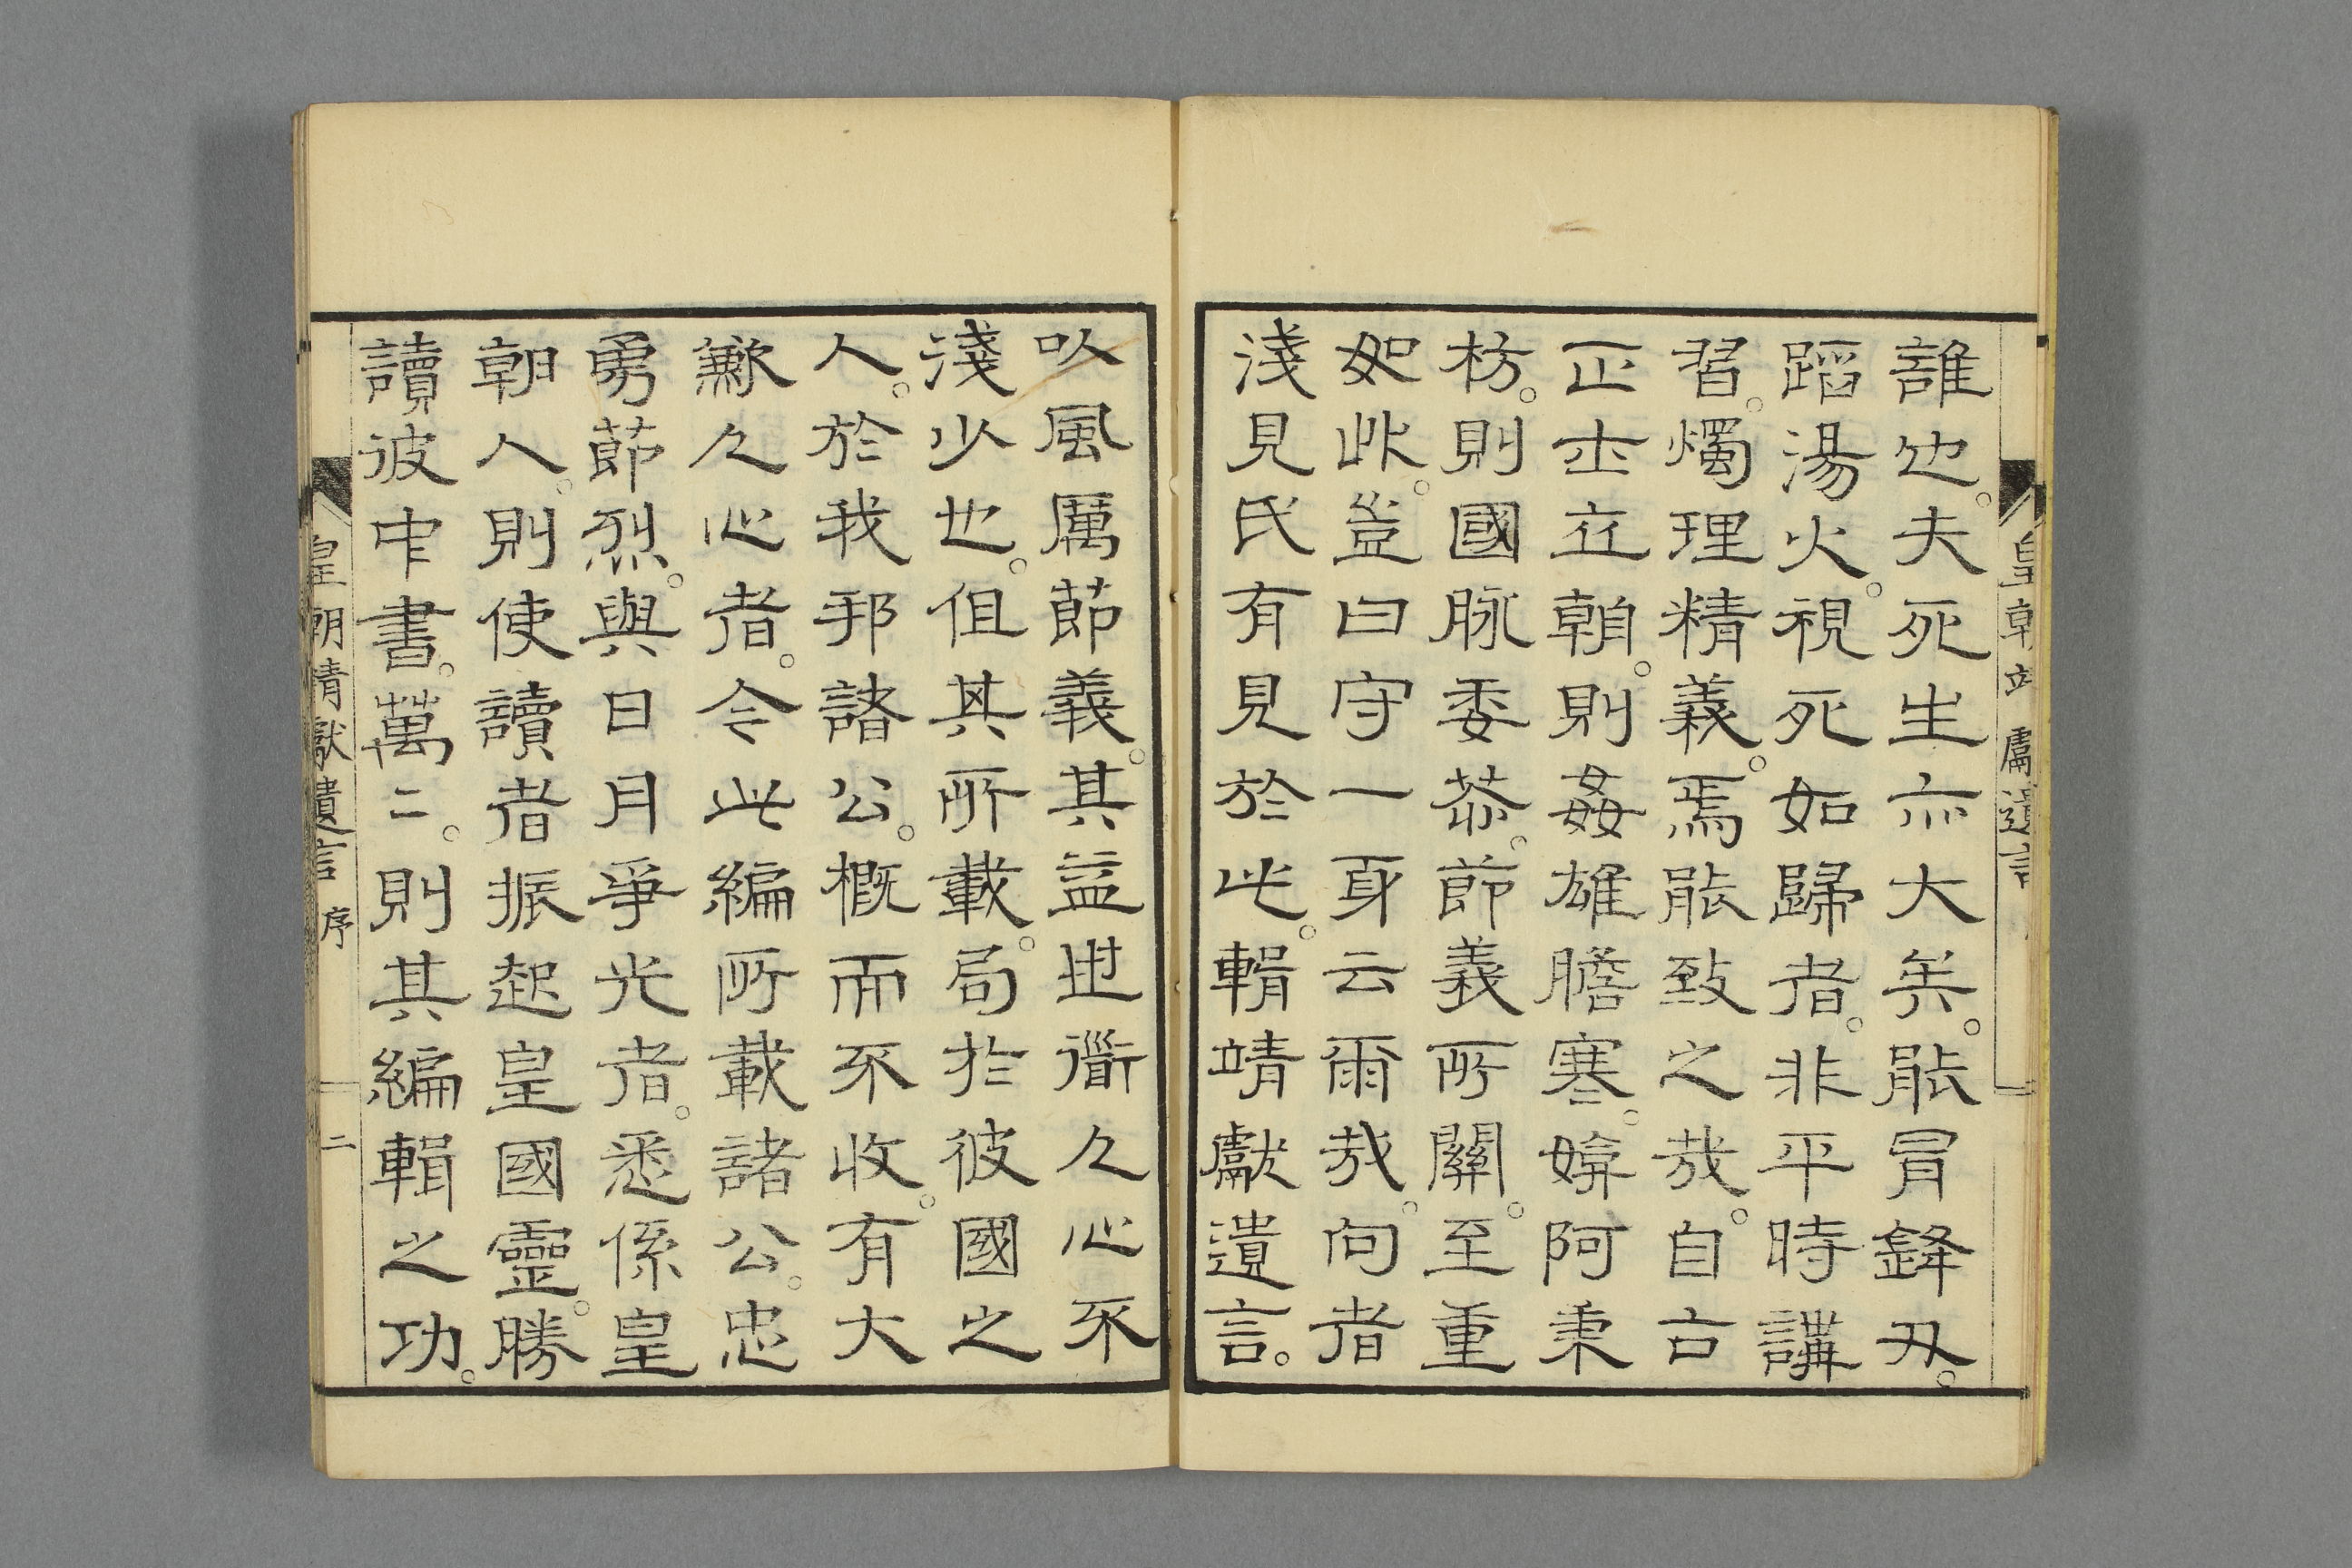 皇朝靖獻遺言
誰也。夫死生亦大矣。能冒鋒刃。
蹈湯火。視死如歸者。非平時講
習。燭理精義。焉能致之哉。自古
正士立朝。則姦雄膽寒。媕阿秉
枋。則國脉委苶。節義所關。至重
如此。豈曰守一身云爾哉。向者
淺見氏有見於此。輯靖獻遺言。
以風厲節義。其益世衟人心不
淺少也。但其所載。局於彼國之
人。於我邦諸公。概而不收。有大
歉人心者。今此編所載諸公。忠
勇節烈。與日月爭光者。悉係皇
朝人。則使讀者振起皇國靈。勝
讀彼中書。萬二。則其編輯之功。
皇朝靖獻遺言 序 二